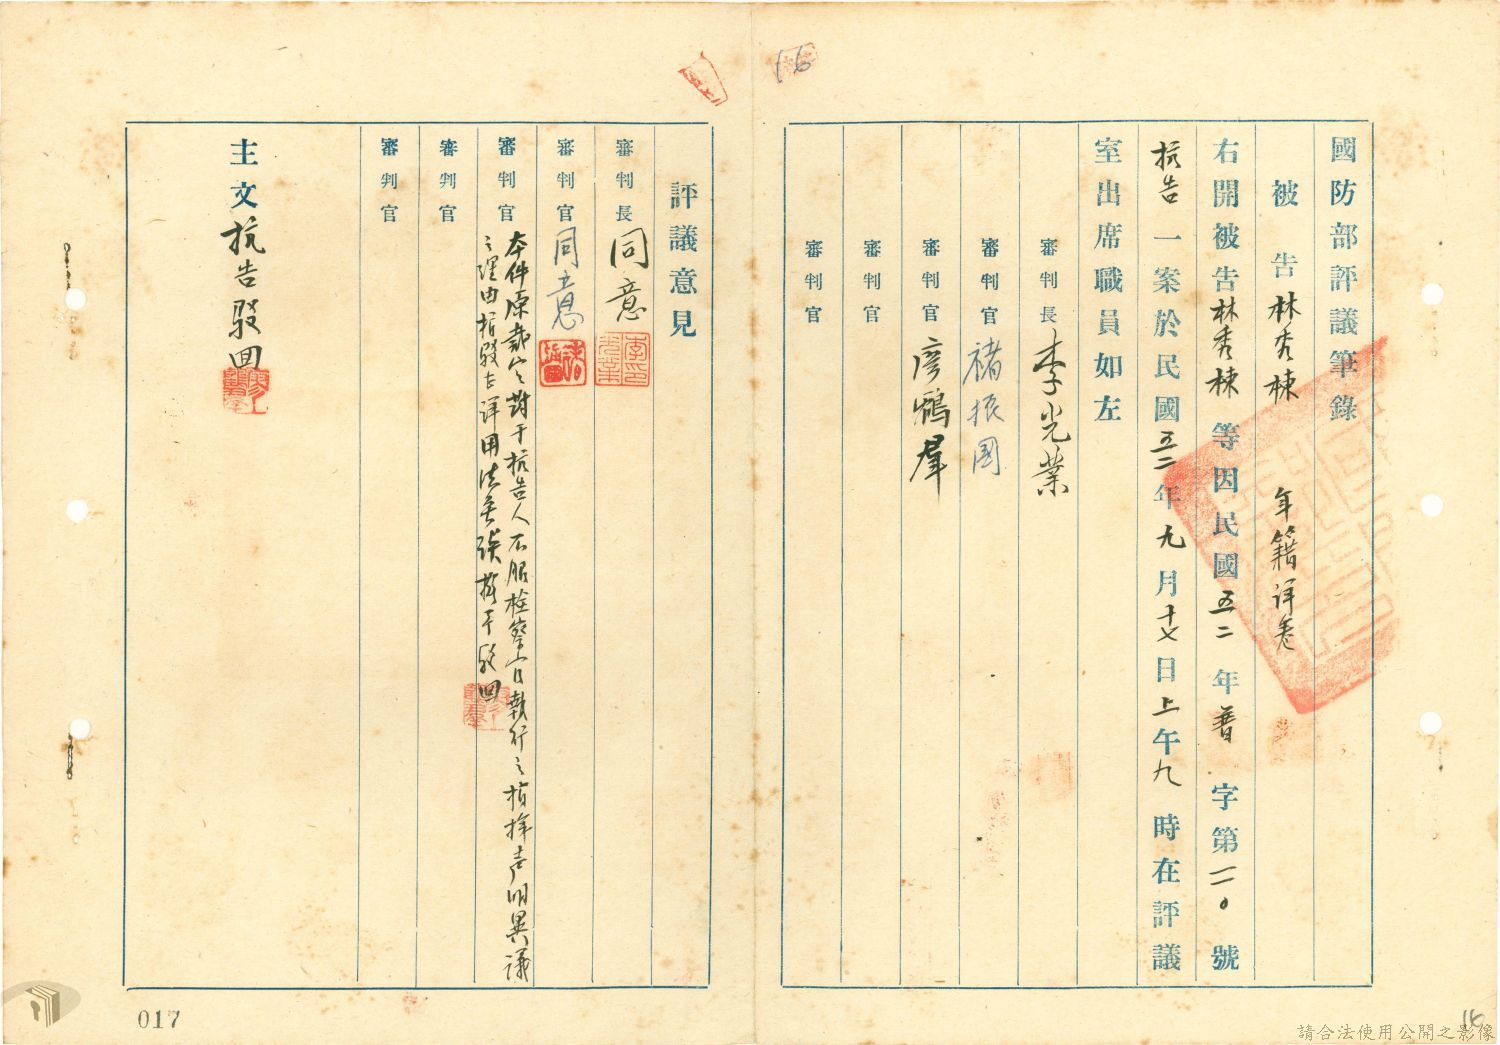 16
國防部評議筆錄
被告林秀棟 年籍詳卷
右開被告林秀棟等因民國五二年普字第一一〇號
抗告一案於民國五二年九月十七日上午九時在評議
室出席職員如左
審判長 李光業
審判官 褚振國
審判官 廖鶴羣
審判官
審判官
評議意見
審判長 同意
李光業印
審判官 同意
審判官 本件原裁定對于抗告人不服檢察官執行之指揮声明異議
之理由指駁甚詳用法無誤擬予駁回
審判官
審判官
主文抗告駁回
017
16
請合法使用公開之影像